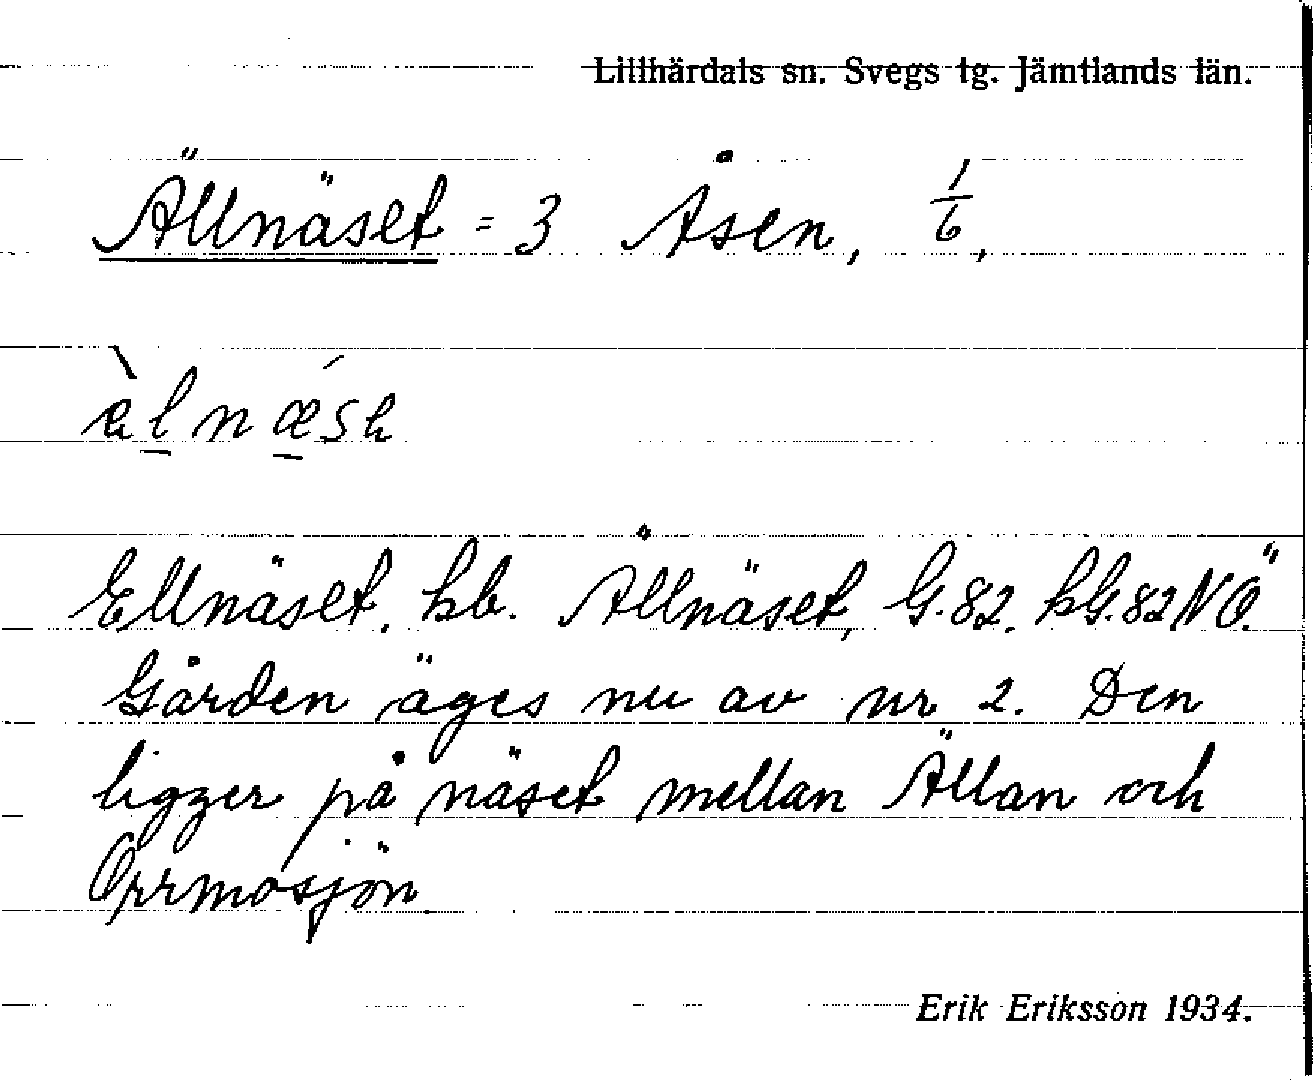 Lillhärdals sn. Svegs tg. Jämtlands län.
Ällnäset = 3 Åsen, 1/6,
æ̀lnǽsh
Ellnäset, kb. Ållnäset, G.82, kG.82NÖ.
Gården äges nu av nr 2. Den
ligger på näset mellan Ällan och
Orrmosjön.
Erik Eriksson 1934.